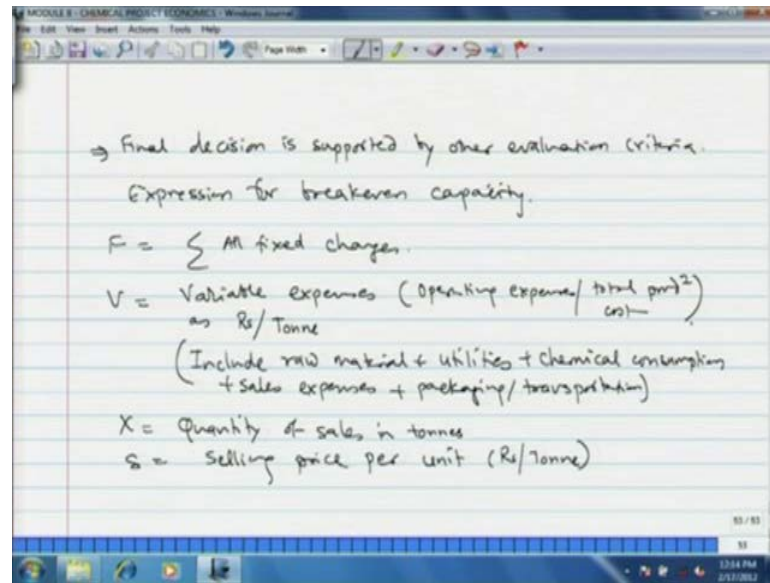 MODULE 8 - CHEMICAL PROJECT ECONOMICS - Windows Journal
File Edit View Insert Actions Tools Help
Page Width
⇒ Final decision is supported by other evaluation criteria.
Expression for breakeven capacity.
F = ∑ All fixed charges.
V = Variable expenses (Operating expenses/ total prod² cost)
as Rs/Tonne
(Include raw material + utilities + chemical consumption
+ sales expenses + packaging/transportation)
X = Quantity of sales in tonnes
S = Selling price per unit (Rs/Tonne)
53 / 53
53
12:14 PM
2/17/2012